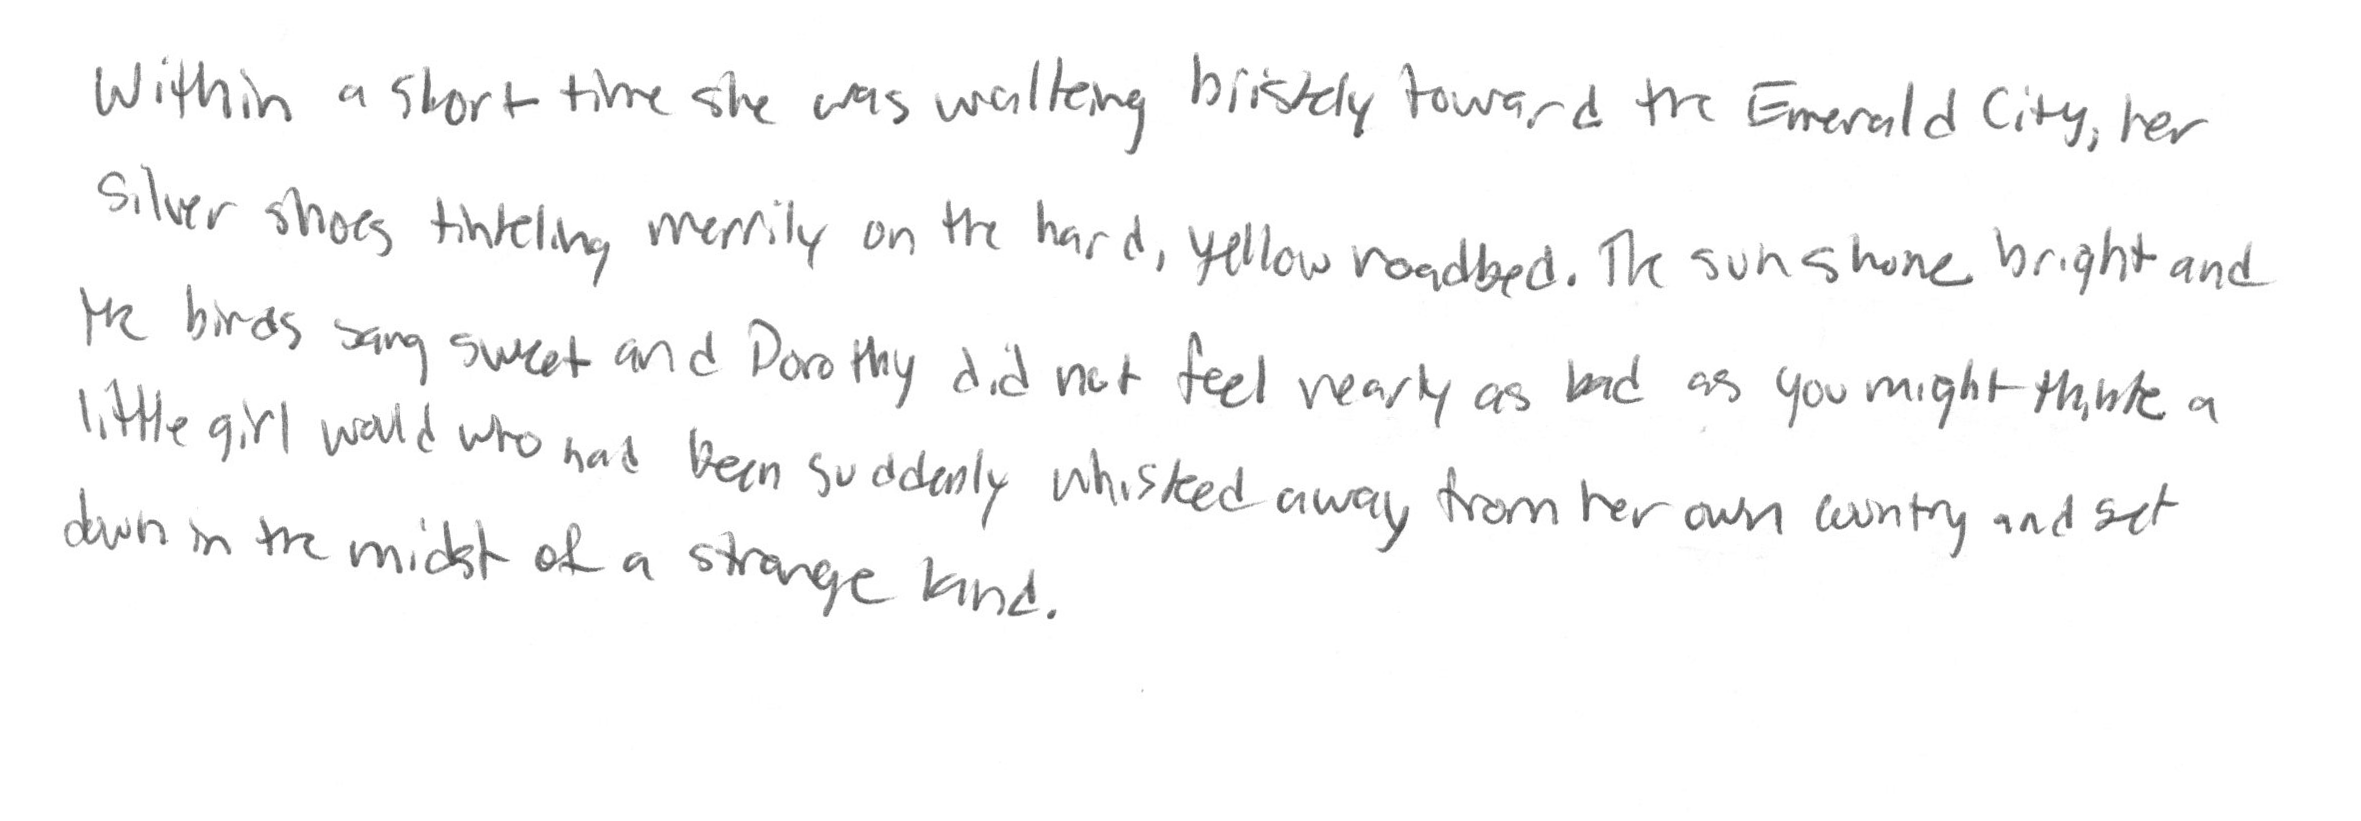 Within a short time she was walking briskly toward the Emerald City, her
silver shoes tinkling merrily on the hard, yellow roadbed. The sun shone bright and
the birds sang sweet and Dorothy did not feel nearly as bad as you might think a
little girl would who had been suddenly whisked away from her own country and set
down in the midst of a strange land.